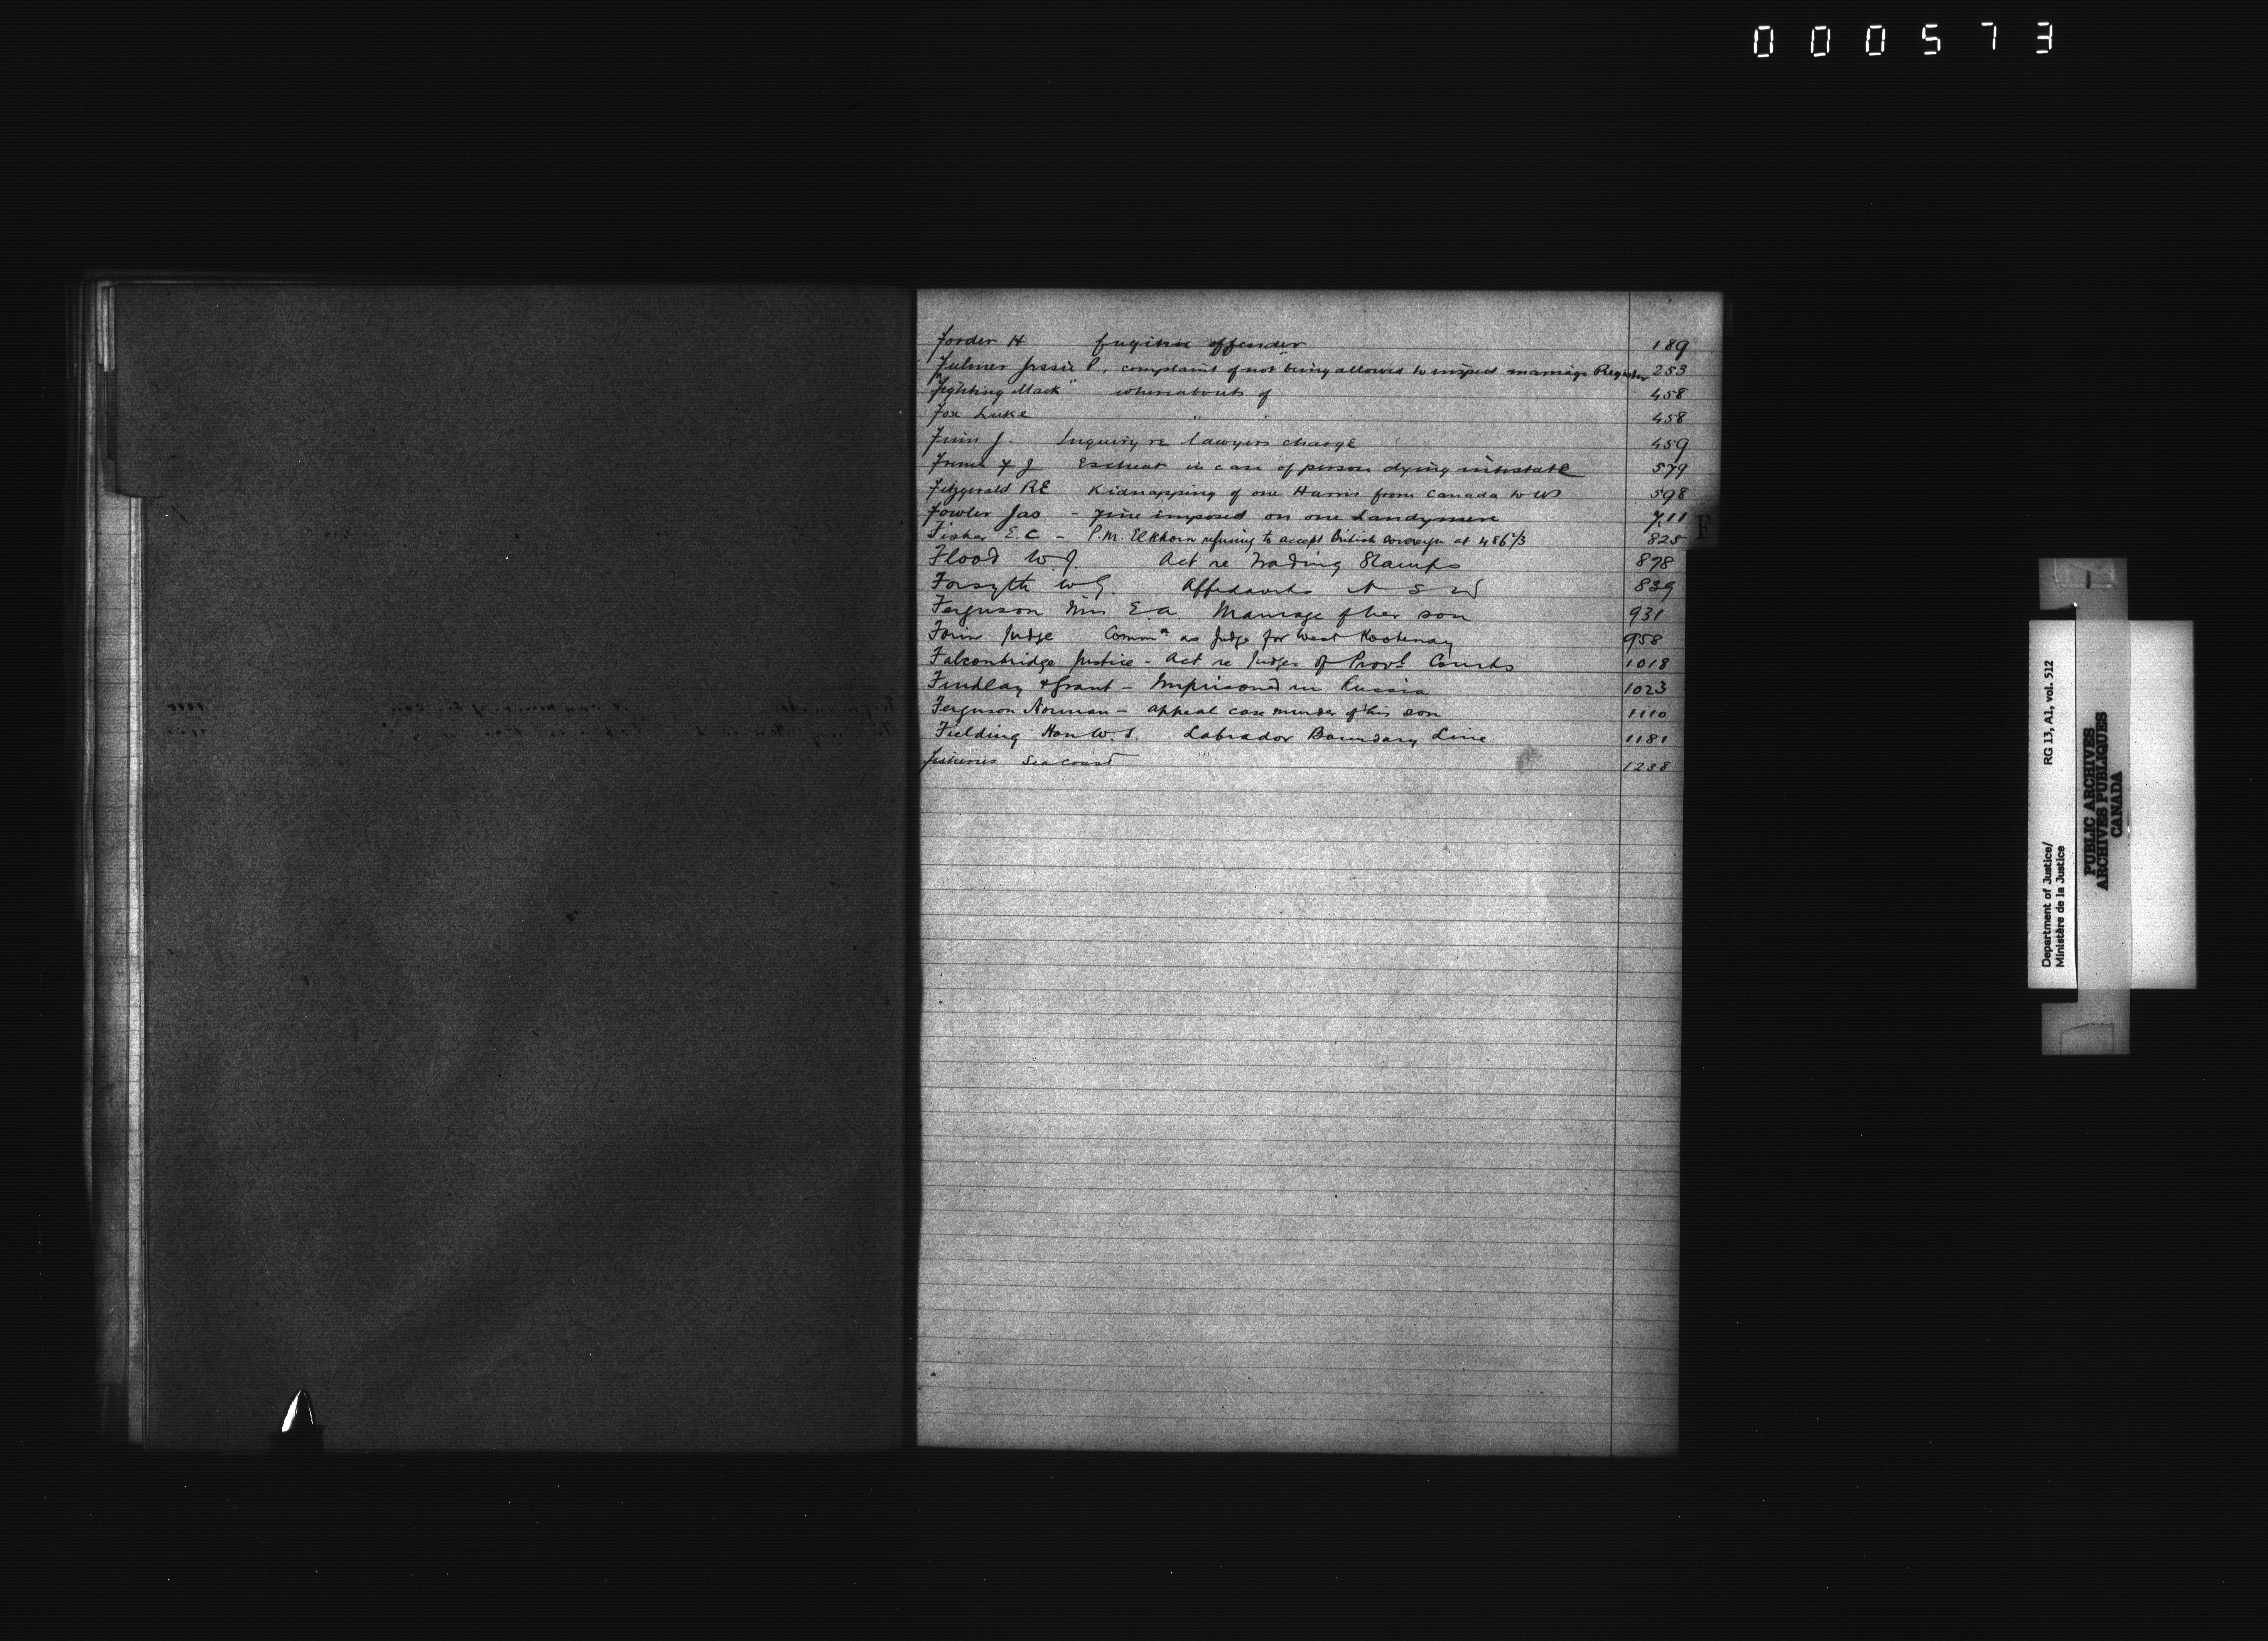 000573
Forder H fugitive offender 189
Fulmer Jessie P. complaint of not being allowed to inspect marriage Register 253
"Fighting Mack" whereabouts of 458
Fox Luke " " 458
Finn J. Inquiry re lawyers charge 459
J Escheat in case of person dying intestate 579
Fitzgerald RE Kidnapping of one Harris from Canada to US 598
Fowler Jas - Fine imposed on one 711
Fisher E.C - P.M. Elkhorn refusing to accept British sovereign at 486 2/3 825
F
Flood W.J. Act re Trading Stamps 878
Forsyth W G. Affidavits N S W 839
Ferguson E.A. Marriage of her son 931
Forin Judge Commn as Judge for West Kootenay 958
Falconbridge Justice - Act re Judges of Provl Courts 1018
Findlay & Grant - Imprisoned in Russia 1023
Ferguson Norman - appeal case murder of his son 1110
Fielding Hon W.S. Labrador Boundary Line 1181
Fisheries Sea Coast 1238
Department of Justice/ RG 13, A1, vol. 512
Ministère de la Justice
PUBLIC ARCHIVES
ARCHIVES PUBLIQUES
CANADA